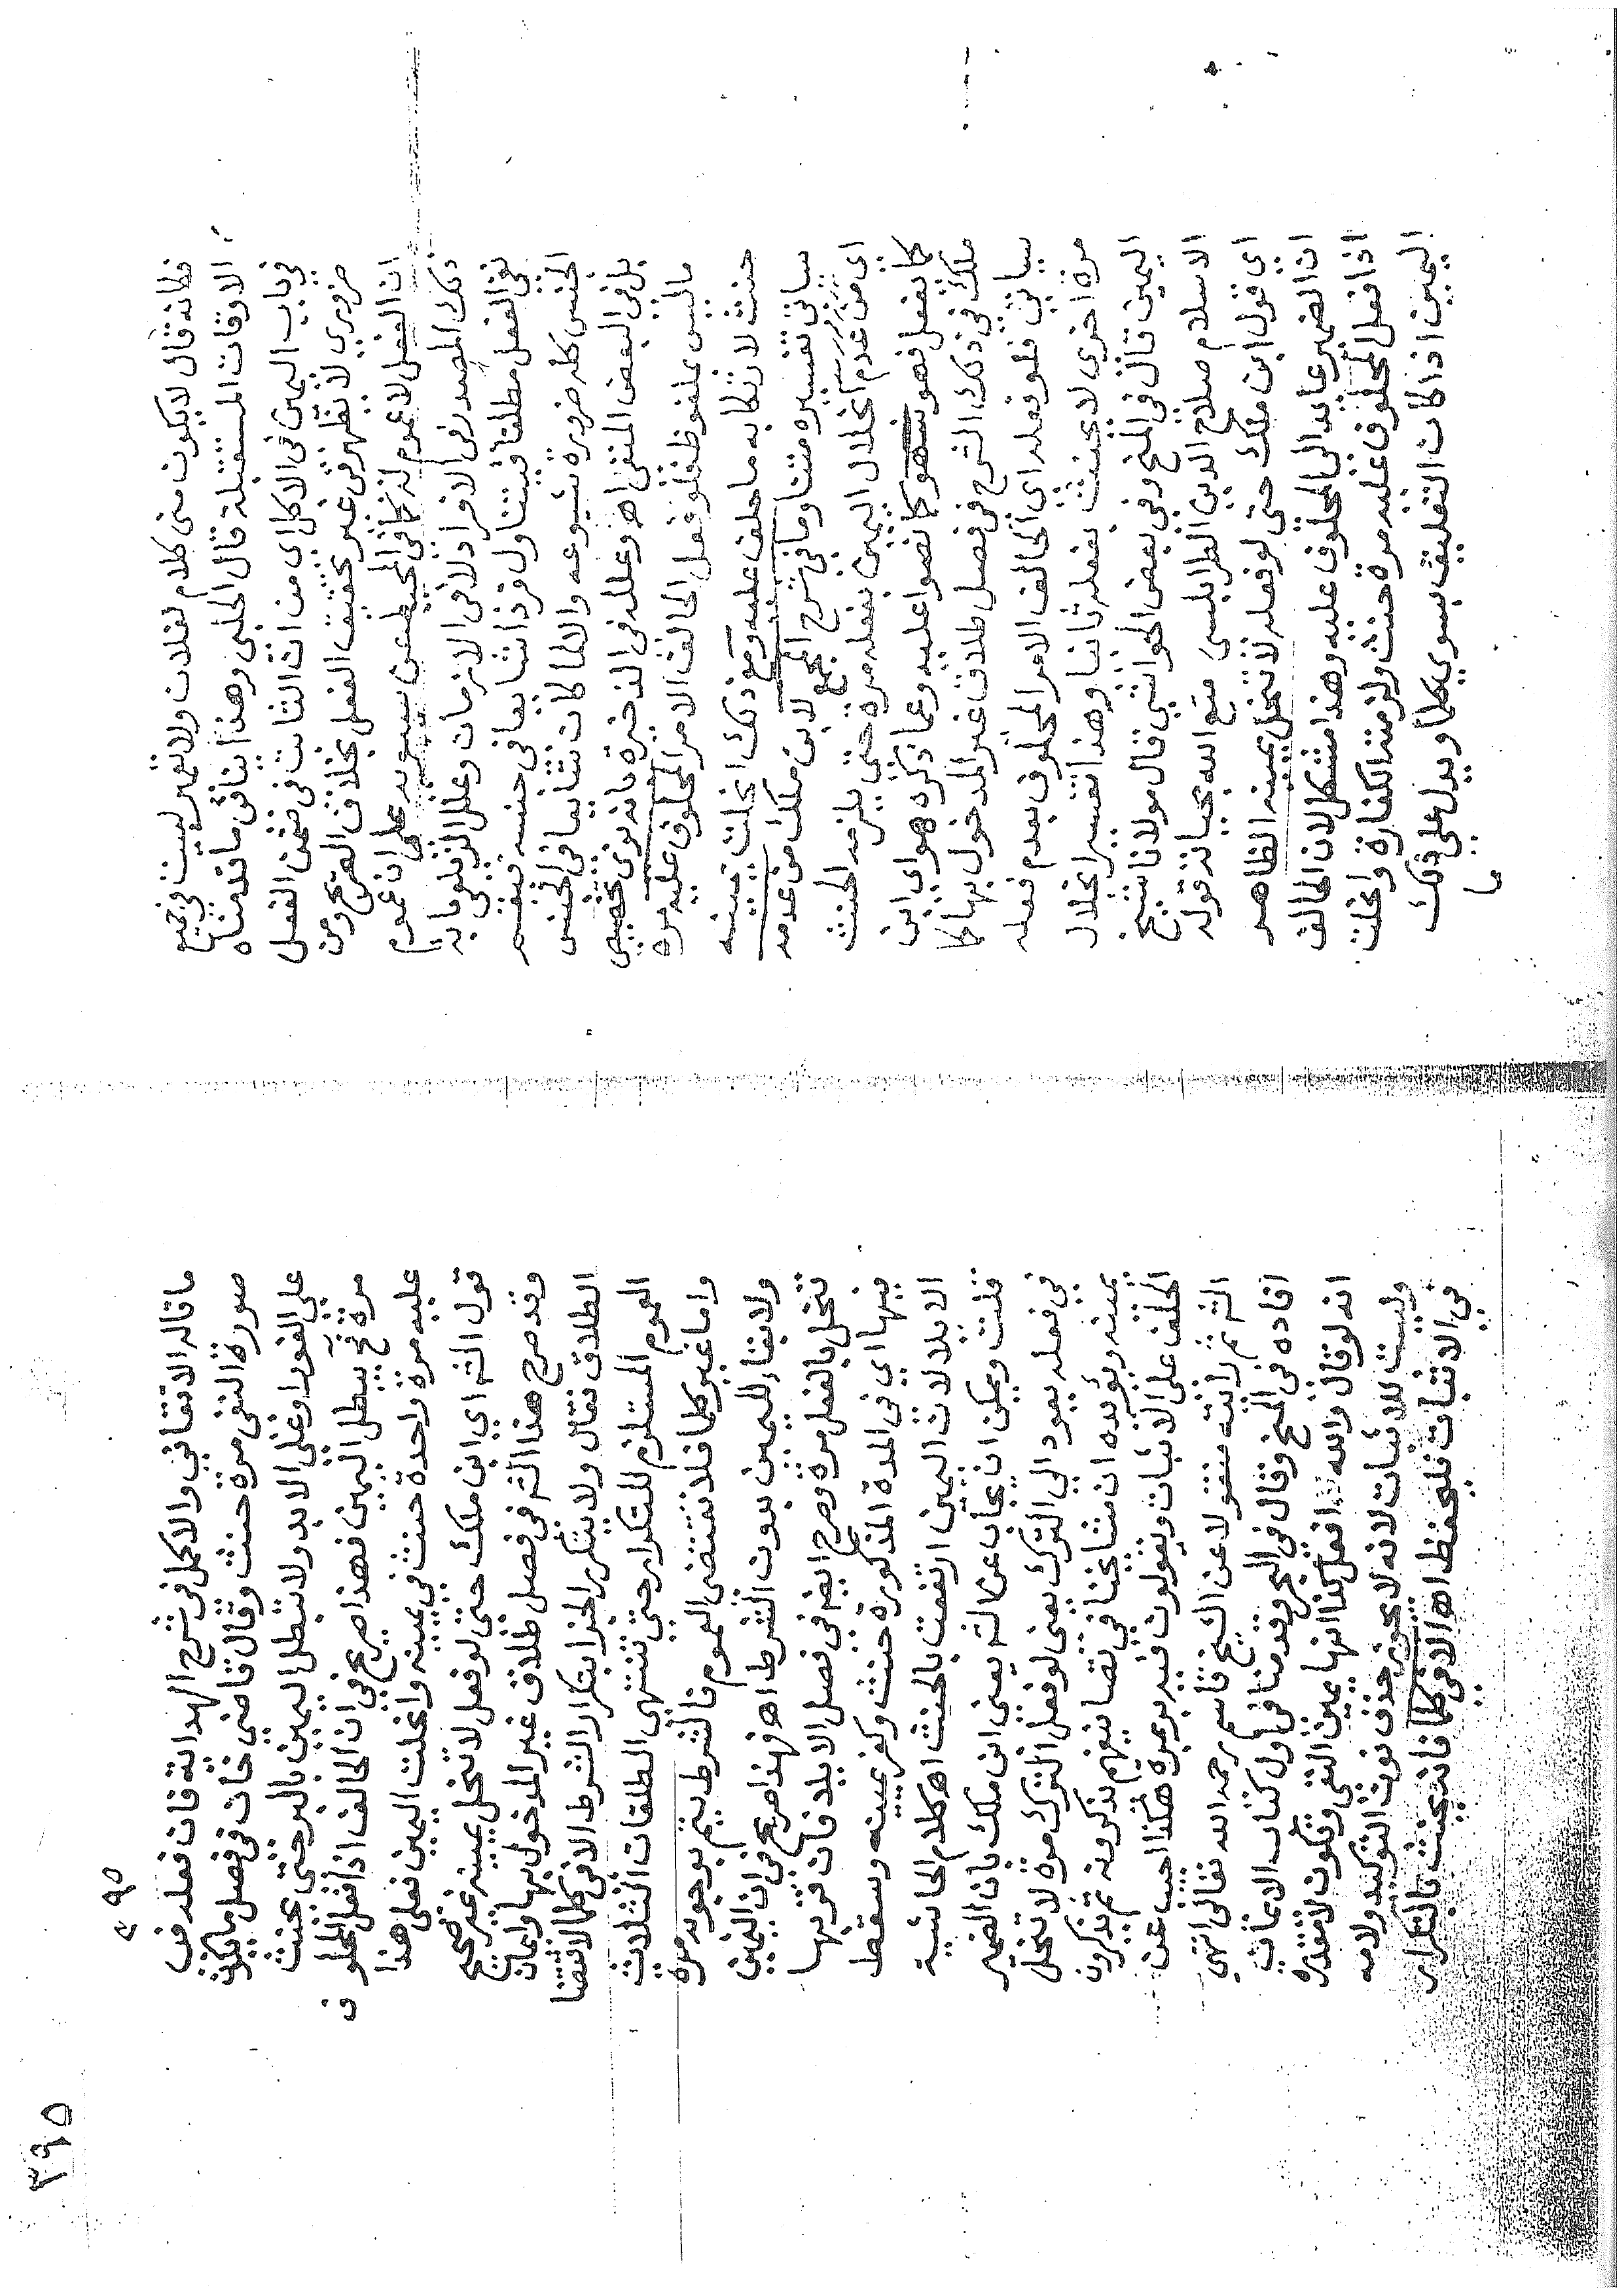 فكانه قال لا يكون منى كلام لفلان ولا تعمير لبيت في جميع
الاوقات المستقبلة قال الحلبى وهذا ينافى ما قدمناه
في باب اليمين فى الاكل اى من ان الثابت فى ضمن الفعل
ضروري لا يظهر فى غير تحقيق الفعل بخلاف الصريح ومن
ان الفعل لا عموم له كما فى المحيط عن سيبويه على ان عموم
ذلك المصدر فى الافراد لا فى الازمان وعلل الزيلعى بانه
نفى الفعل مطلقا فيتناول فردا شايعا فى جنسه فيعم
الجنس كله ضرورة شيوعه والالما كان شايعا فى الجنس
بل فى البعض المنفى اهـ وعلله فى الذخيرة بانه نوى تخصيص
ماليس بملفوظ فلو فعل الحالف الامر المحلوف عليه مرة
حنث لارتكابه ما حلف عليه ومع ذلك انحلت يمينه
سياتى تفسيره متنا وما فى شرح المجمع لابن ملك من عدمه
اى من عدم انحلال اليمين بفعله مرة حتى يلزمه الحنث
كلما فعل فهو سهو كما نصوا عليه وعما ذكره هو اى ابن
ملك فى ذلك الشرح فى فصل طلاق غير المدخول بها كما
سياتى فلو فعله اى الحالف الامر المحلوف بعدم فعله
مرة اخرى لا يحنث بفعله ثانيا وهذا تفسير انحلال
اليمين قال فى المنح وفى بعض الحواشى قال مولانا شيخ
الاسلام صلاح الدين الطرابلسى متع الله بحياته قوله
اى قول ابن ملك حتى لو فعله لا تنحل يمينه الظاهر
ان الضمير عايد الى المحلوف عليه وهذا مشكل لان الحالف
اذا فعل المحلوف عليه مرة حنث ولزمته الكفارة وانحلت
اليمين اذا كان التعليق بسوى كلما ويدل على ذلك
ما
٣٩٥
٩٥
ما قاله الاتقانى والاكمل فى شرح الهداية فان فعله فى
صورة النفى مرة حنث وقال قاضى خان فى فصل ما يكون
على الفور او على الابد ولا تبطل اليمين بالبر حتى يحنث
مرة فح يبطل اليمين فهذا صريح فى ان الحالف اذا فعل المحلوف
عليه مرة واحدة حنث فى يمينه وانحلت اليمين فعلى هذا
قول الش اى ابن ملك حتى لو فعل لا تنحل يمينه غير صحيح
وقد صرح هذا الش فى فصل طلاق غير المدخول بها وايمان
الطلاق فقال ولا يتكرر الجزا بتكرار الشرط الا فى كلما لاقتضا
العموم المستلزم للتكرار حتى تنتهى الطلقات الثلاث
واما غير كلما فلا تقتضى العموم فالشرط يتم بوجوده مرة
ولا بقاء لليمين بدون الشرط اهـ فهذا صريح فى ان اليمين
تنحل بالفعل مرة وصرح ايضا فى فصل الايلاء فان قربها
فيها اى فى المدة المذكورة حنث وكفر يمينه وسقط
الايلاء لان اليمين ارتفعت بالحنث اهـ كلام الحاشية
قلت ويمكن ان يجاب عن الش يعنى ابن ملك بان الضمير
فى فعله يعود الى الترك يعنى لو فعل الترك مرة لا تنحل
يمينه ويؤيده ان مشايخنا فى تصانيفهم يذكرونه ثم يذكرون
الحلف على الاثبات ويقولون فيه يبر بمرة هكذا اجيب عن
الش ثم رايته منقولا عن الشيخ قاسم رحمه الله تعالى انتهى
افاده فى المنح وقال فى البحر وقد منا فى اول كتاب الايمان
انه لو قال والله افعل كذا انها يمين النفى وتكون لا مقدرة
وليست للاثبات لانه لا يجوز حذف نون التوكيد ولامه
فى الاثبات فليحفظ اهـ الا فى كلما فانه يحنث بالتكرار